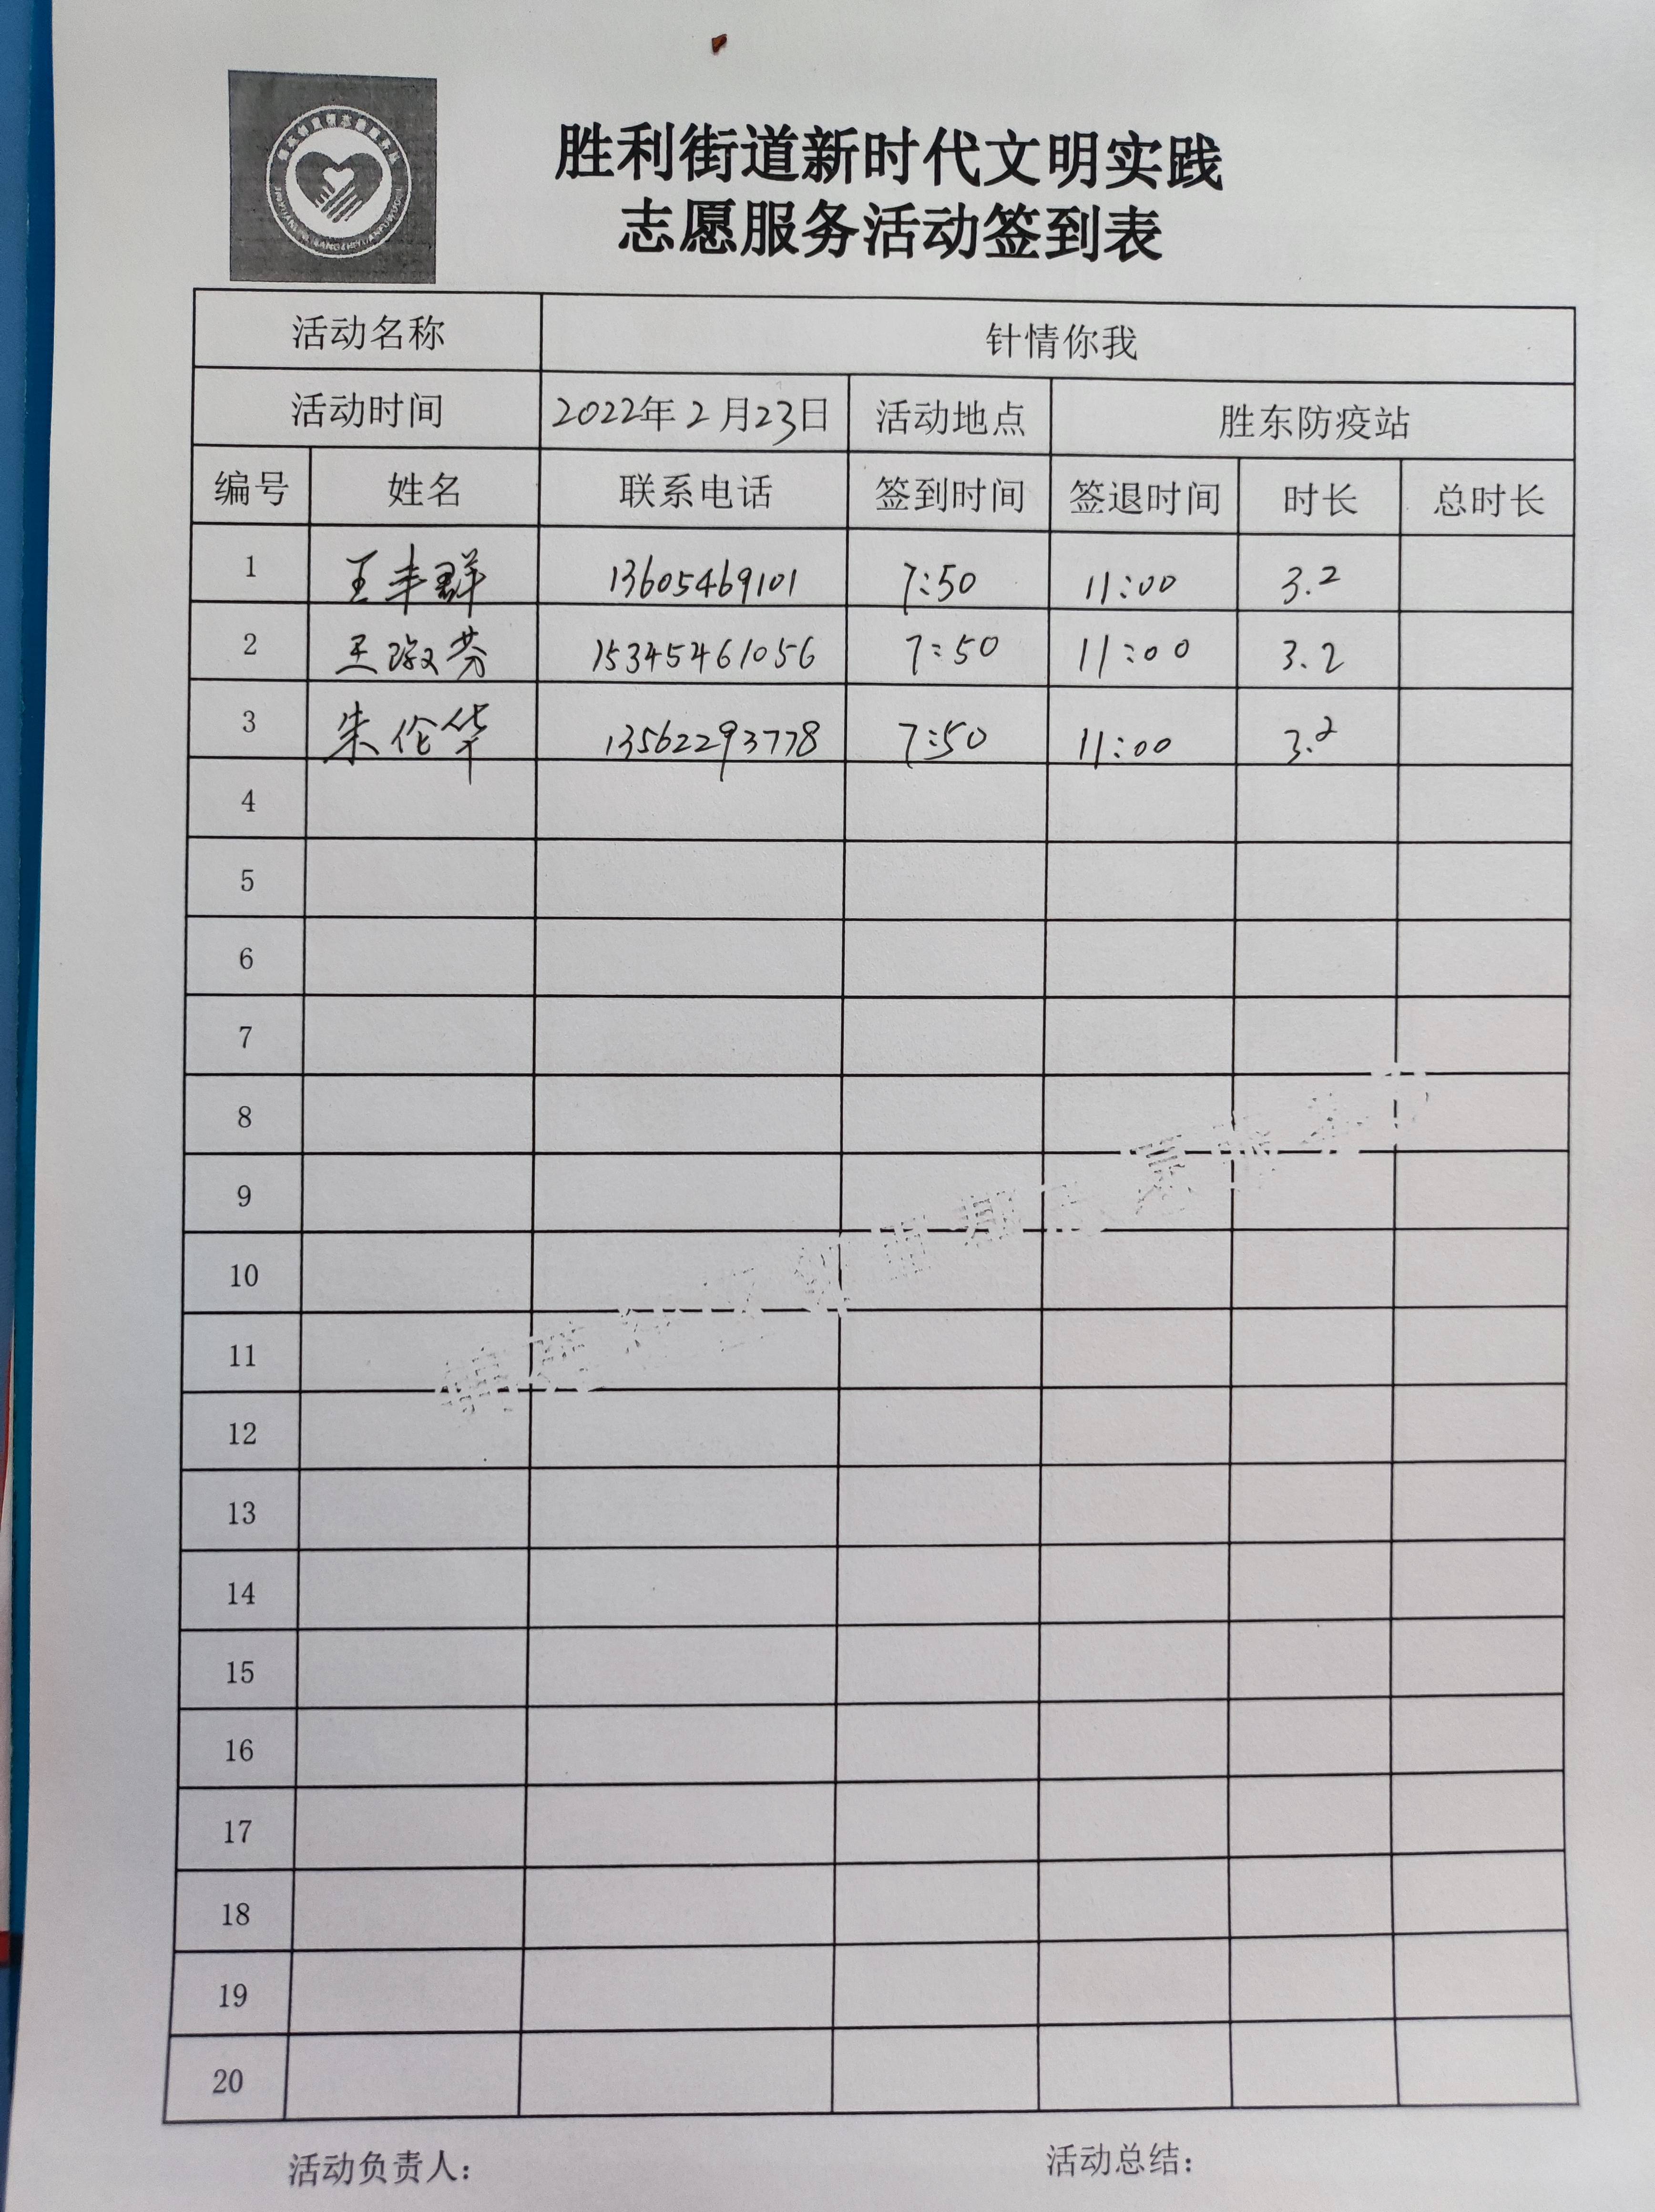 胜利街道新时代文明实践
志愿服务活动签到表
活动名称 针情你我
活动时间 2022年2月23日 活动地点 胜东防疫站
编号 姓名 联系电话 签到时间 签退时间 时长 总时长
1 王丰群 13605469101 7:50 11:00 3.2
2 王淑芬 15345461056 7:50 11:00 3.2
3 朱伦华 13562293778 7:50 11:00 3.2
4
5
6
7
8
9
10
11
12
13
14
15
16
17
18
19
20
活动负责人: 活动总结: